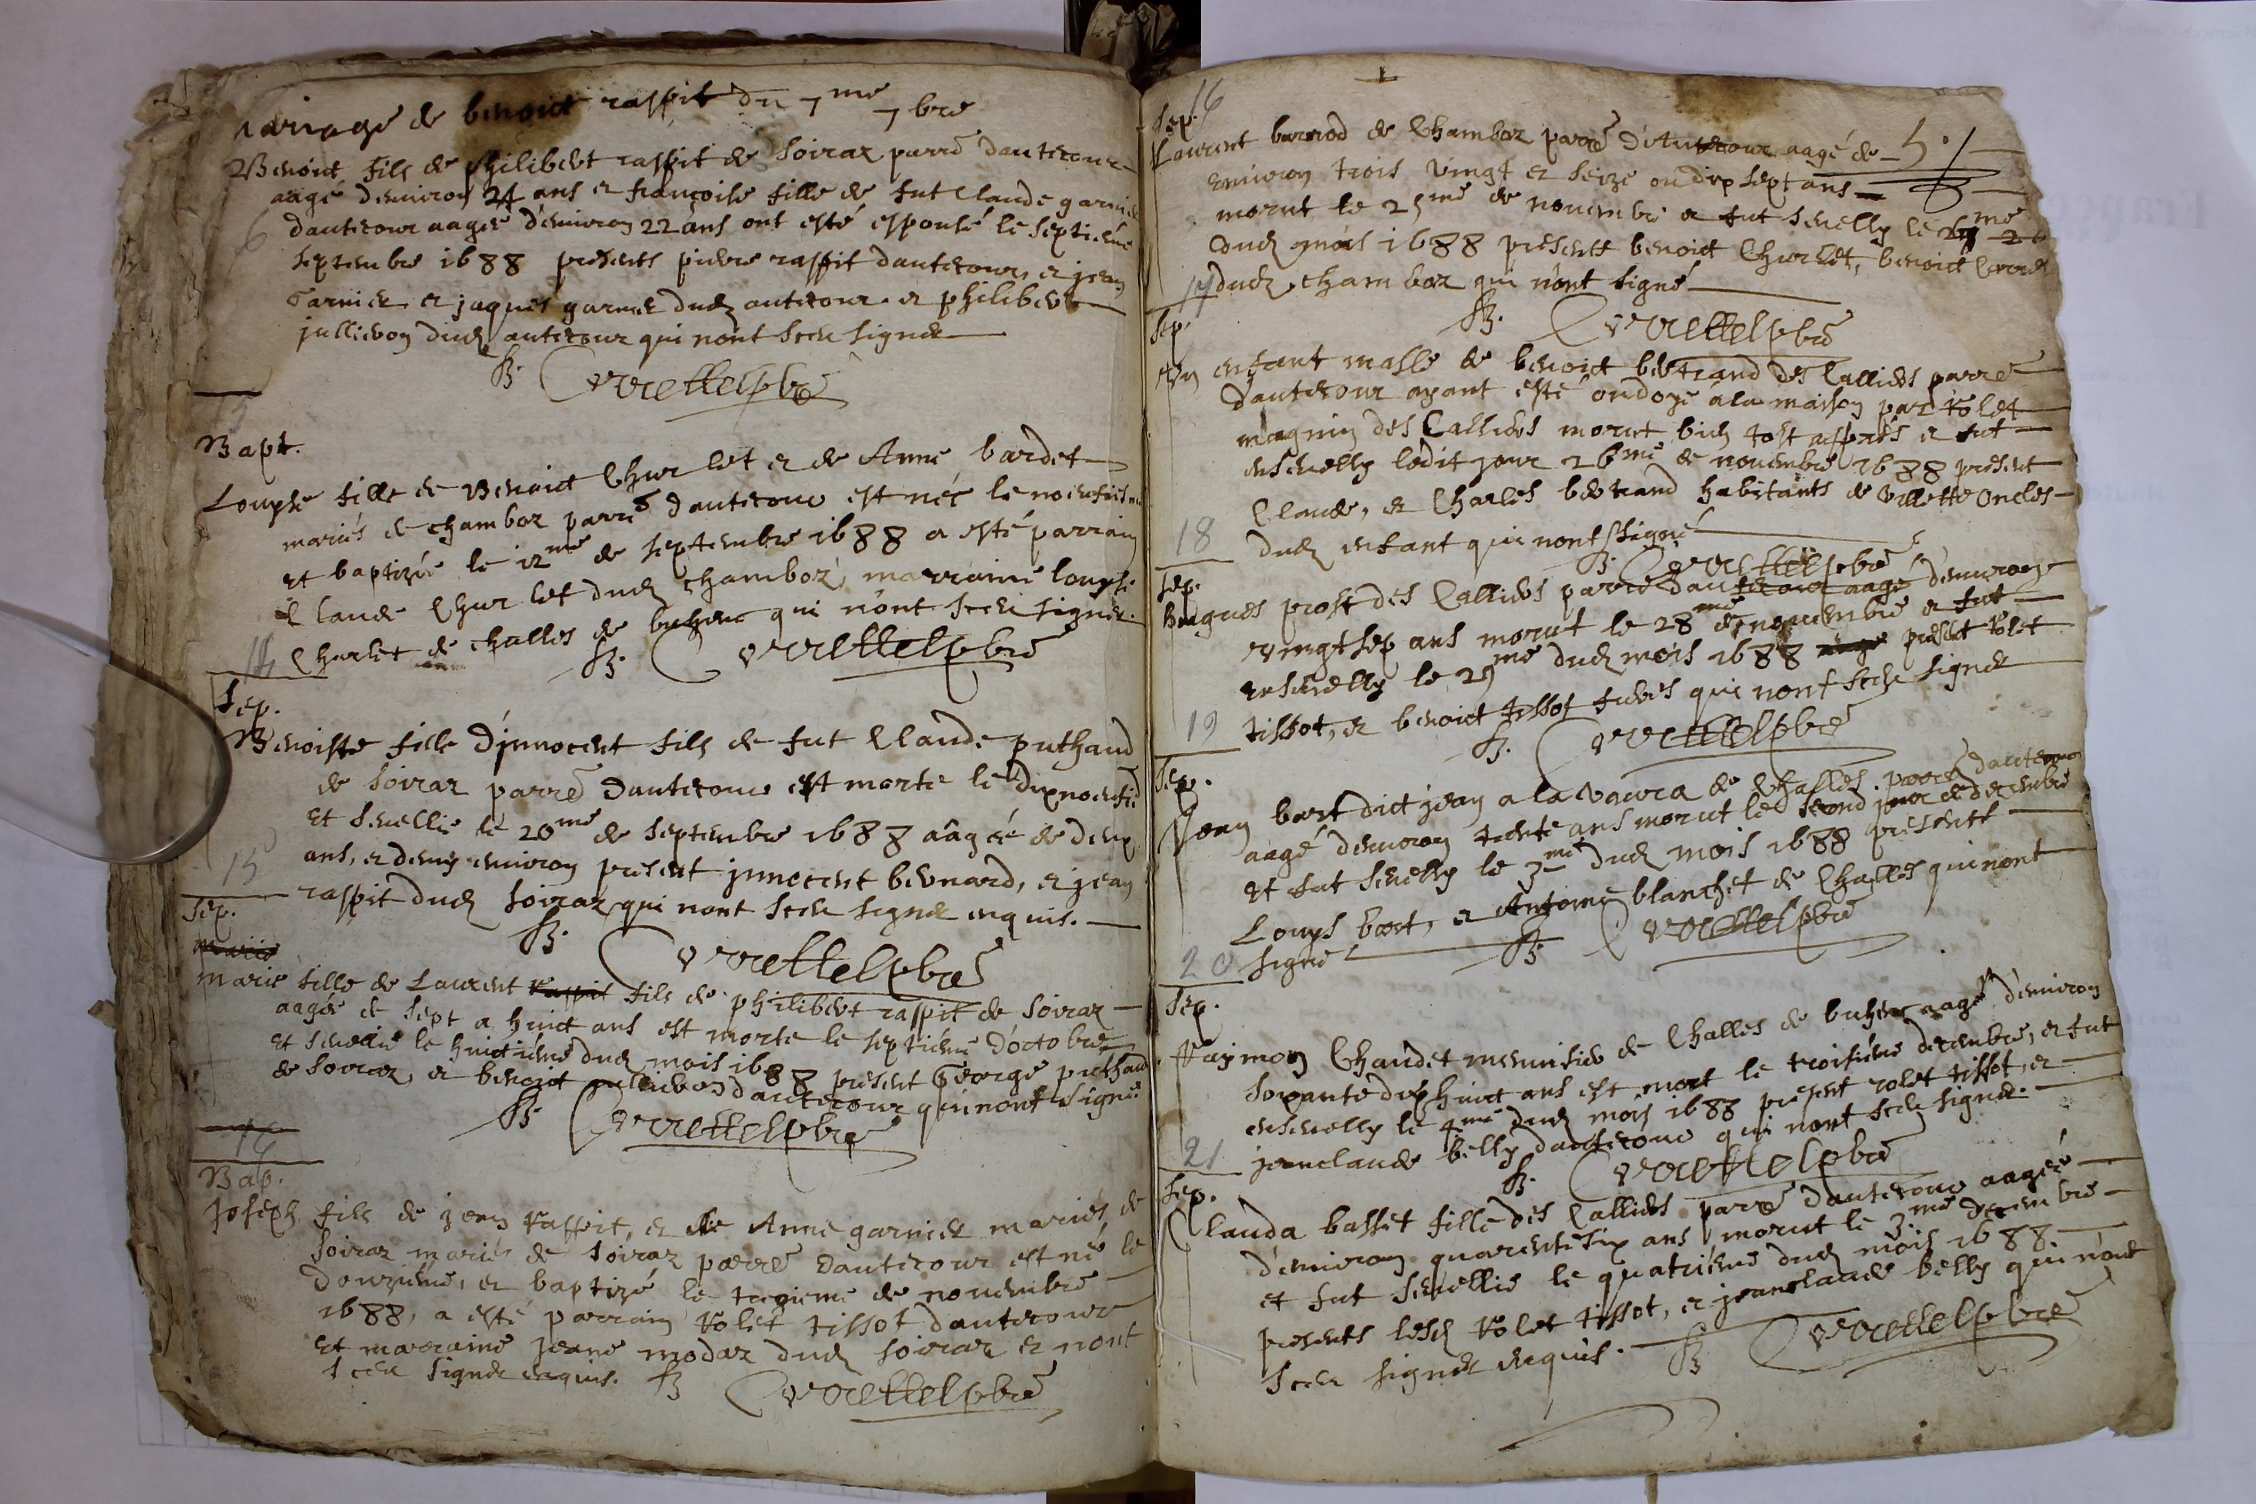 mariage de benoict raspit du 7me 7bre
Benoict fils de philibert raspit de soiraz parre dautecour
aagé denuiron 24 ans et francoise fille de fut Claude garnier
6 dautecour aagee d'enuiron 22 ans ont esté espousé le septieme
septembre 1688 presents pierre raspit dautecour, et jean
Garnier et jaques garnier dud autecour et philibert
jullieron dud autecour qui nont sceu signer
Vuettel pbre
13
Bapt.
Louyse fille de Benoict Churlet et de Anne bardet
mariés de chamboz parre dautecour est née le noeufiesme
et baptizée le 12me de septembre 1688 a esté parrain
Claude Churlet dud chamboz, marraine louyse
14 Charlet de challes de bohenc qui n'ont sceu signer.
Vuettel pbre
Sep.
Benoiste fille d'jnnocent fils de fut Claude puthaud
de soiraz parre dautecour est morte le dixnoeufie
et seuellie le 20me de septembre 1688 aâgée de deux
ans, et demy enuiron present jnnocent bernard, et jean
15 raspit dud soiraz qui nont sceu signer enquis.
Sep.
Vuettel pbre
marie
marie fille de Laurent raspit fils de philibert raspit de soiraz
aagée de sept a huict ans est morte le septiéme d'octobre
et seuellie le huictiéme dud mois 1688 present George puthaud
de soiraz, et benoict jullieron dautecour qui nont signé
Vuettel pbre
16
Bap.
Joseph fils de jean raspit, et de Anne garnier mariés de
soiraz mariés de soiraz parre dautecour est né le
douziéme, et baptizé le trezieme de nouembre
1688, a esté parrain rolet tissot dautecour
et marraine jeane modaz dud soiraz et nont
sceu signer enquis. Vuettel pbre
16
Sep.
Laurent barriod de Chamboz parre d'Autecour aagé de 5.
enuiron trois vingt et seize ou dix sept ans
morut le 25me de nouembre et fut seuelly le 26me
dud mois 1688 presents benoict Churlet, benoict
17 dud chamboz qui n'ont signé
Sep.
Vuettel pbre
Un enfant masle de benoict bertrand des Calliers parre
dautecour ayant esté ondoyé a la maison par rolet
magnin des Calliers morut bien tost apprés et fut
enseuelly ledit jour 26me de nouembre 1688 present
Claude, et Charles bertrand habitants de Villette oncles
18 dud enfant qui nont signé
Vuettel pbre
Sep.
prost des Calliers parre dautecour aagé d'enuiron
vingt sep ans morut le 28me de nouembre et fut
enseuelly le 29me dud mois 1688 present rolet
19 tissot, et benoict tissot freres qui nont sceu signer
Vuettel pbre
Sep.
Jean bart dict jean a la de Challes parre dautecour
aagé denuiron trente ans morut le second jour de decembre
et fut seuelly le 3me dud mois 1688 presents
Louys bart, et Antoine blanchet de Challes qui nont
20 signé
Vuettel pbre
Sep.
Raymon Chaudet menuisier de Challes de bohenc aagé d'enuiron
soixante dix huict ans est mort le troisiéme decembre, et fut
enseuelly le 4me dud mois 1688 present rolet tissot, et
21 jeanclaude belly dautecour qui nont sceu signer.
Vuettel pbre
Sep.
Clauda basset fille des Calliers parre dautecour aagée
d'enuiron quarente six ans morut le 3me decembre
et fut seuellie le quatriéme dud mois 1688.
presents lesd rolet tissot, et jeanclaude belly qui n'ont
sceu signer enquis. Vuettel pbre